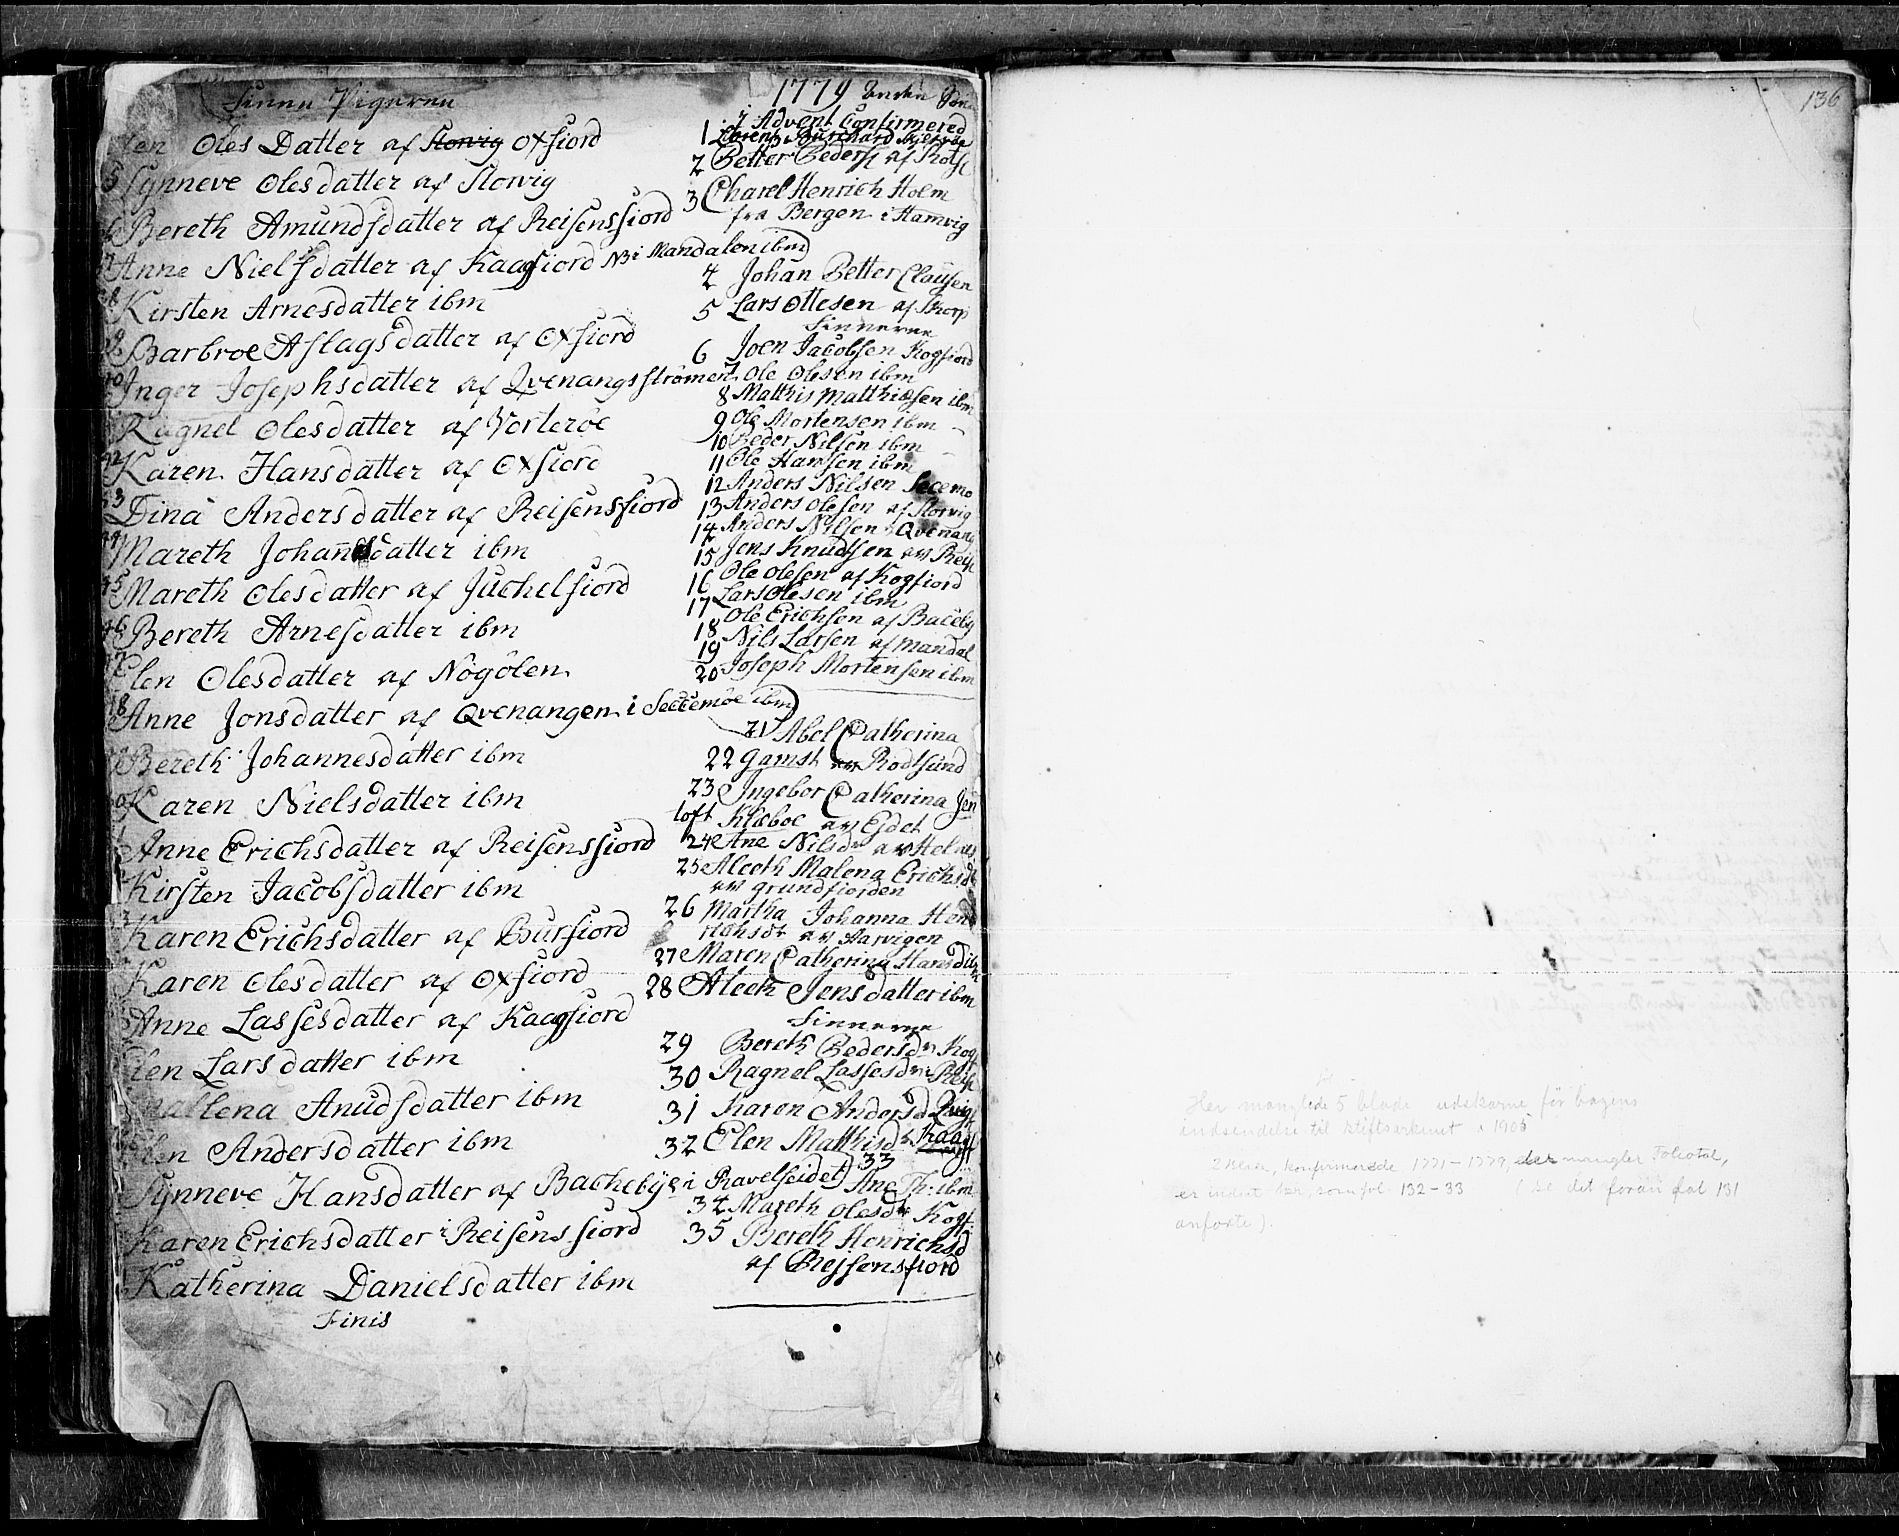 Finne Pigerne
Oles Datter af Storvig Oxfiord
5 Synneve Olesdatter af Storvig
6 Bereth Amundsdatter af Reisensfiord
7 Anne Nielsdatter af Kaagfiord NB i Mandalen ibm
8 Kirsten Arnesdatter ibm
9 Barbroe Aslagsdatter af Oxfiord
10 Inger Josephsdatter af Qvenangsstrømen
Ragnel Olesdatter af Vorterøe
12 Karen Hansdatter af Oxfiord
13 Dina Andersdatter af Reisensfiord
14 Mareth Johansdatter ibm
15 Mareth Olesdatter af Juchelfiord
16 Bereth Arnesdatter ibm
17 Elen Olesdatter af Nögölen
18 Anne Jonsdatter af Qvenangen i Seccemöe ibm
Bereth Johannesdatter ibm
Karen Nielsdatter ibm
Anne Erichsdatter af Reisensfiord
Kirsten Jacobsdatter ibm
Karen Erichsdatter af Burfiord
Karen Olesdatter af Oxfiord
Anne Lassesdatter af Kaagfiord
Larsdatter ibm
Mallena Anudsdatter ibm
Elen Andersdatter ibm
Synneve Hansdatter af Bachebÿe i Ravelseidet
Karen Erichsdatter i Reisensfiord
Katherina Danielsdatter ibm
Finis
1779 anden Søn
i Advent Confirmered
1 Lorents Burchard
2 Petter Peders af Rots
3 Charel Henrich Holm
fra Bergen i Hamvig
4 Johan Petter Clausen
5 Lars Ottesen af Skorp
Finnerne
6 Joen Jacobsen Kogfiord
7 Ole Olesen ibm
8 Matthis Matthisen ibm
9 Ole Mortensen ibm
10 Peder Nilsen ibm
11 Ole Hansen ibm
12 Anders Nilsen Secemo
13 Anders Olesen af Storvig
14 Anders Nilsen i Qvenang
15 Jens Knudsen av Reis
16 Ole Olesen af Kogfiord
17 Lars Olesen ibm
18 Ole Erichsen af Baceby
19 Nils Larsen af Mandal
20 Joseph Mortensen ibm
21 Abel Catherina
22 Gamst av Rodsund
23 Ingebor Catherina Jen
toft Klæboe av Ejdet
24 Ane Nilsdr av Helnes
25 Aleeth Malena Erichsd
av Grundfiorden
26 Martha Johanna Hen
richsdr av Aarvigen
27 Maren Catherina Hansdtr
28 Aleeth Jensdatter ibm
Finnerne
29 Bereth Pedersdr Kog
30 Ragnel Lassesdr i Reis
31 Karen Andersd
32 Elen Matthisdr Kaagf
33 Ane Th: ibm
34 Mareth Olesdr Kogf:
35 Bereth Henrichsd
af Rejsensfiord
136
Her manglede 5 blade udskarne før bogens
indsendelse til stiftsarkivet i 1905
2 blade, konfirmerede 1771-1779, der mangler Foliotal,
er indsat her, som fol. 132-33 (se det foran fol 131
anførte).